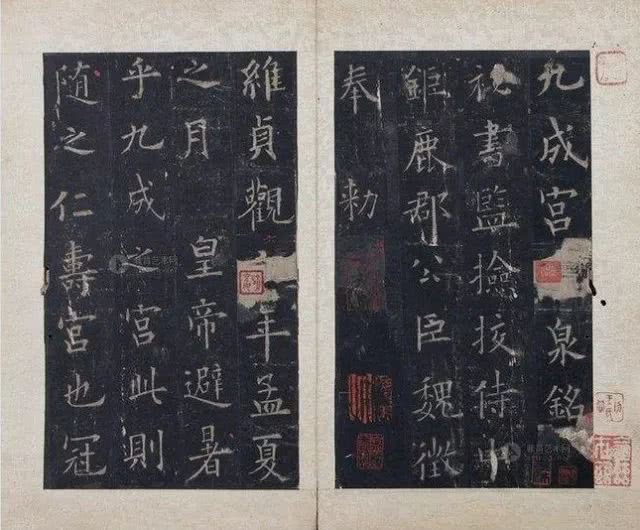 九成宮 泉銘
秘書監撿挍侍中
鉅鹿郡公臣魏徵
奉 勅
維貞觀 年孟夏
之月 皇帝避暑
乎九成之宮此則
隨之仁壽宮也冠